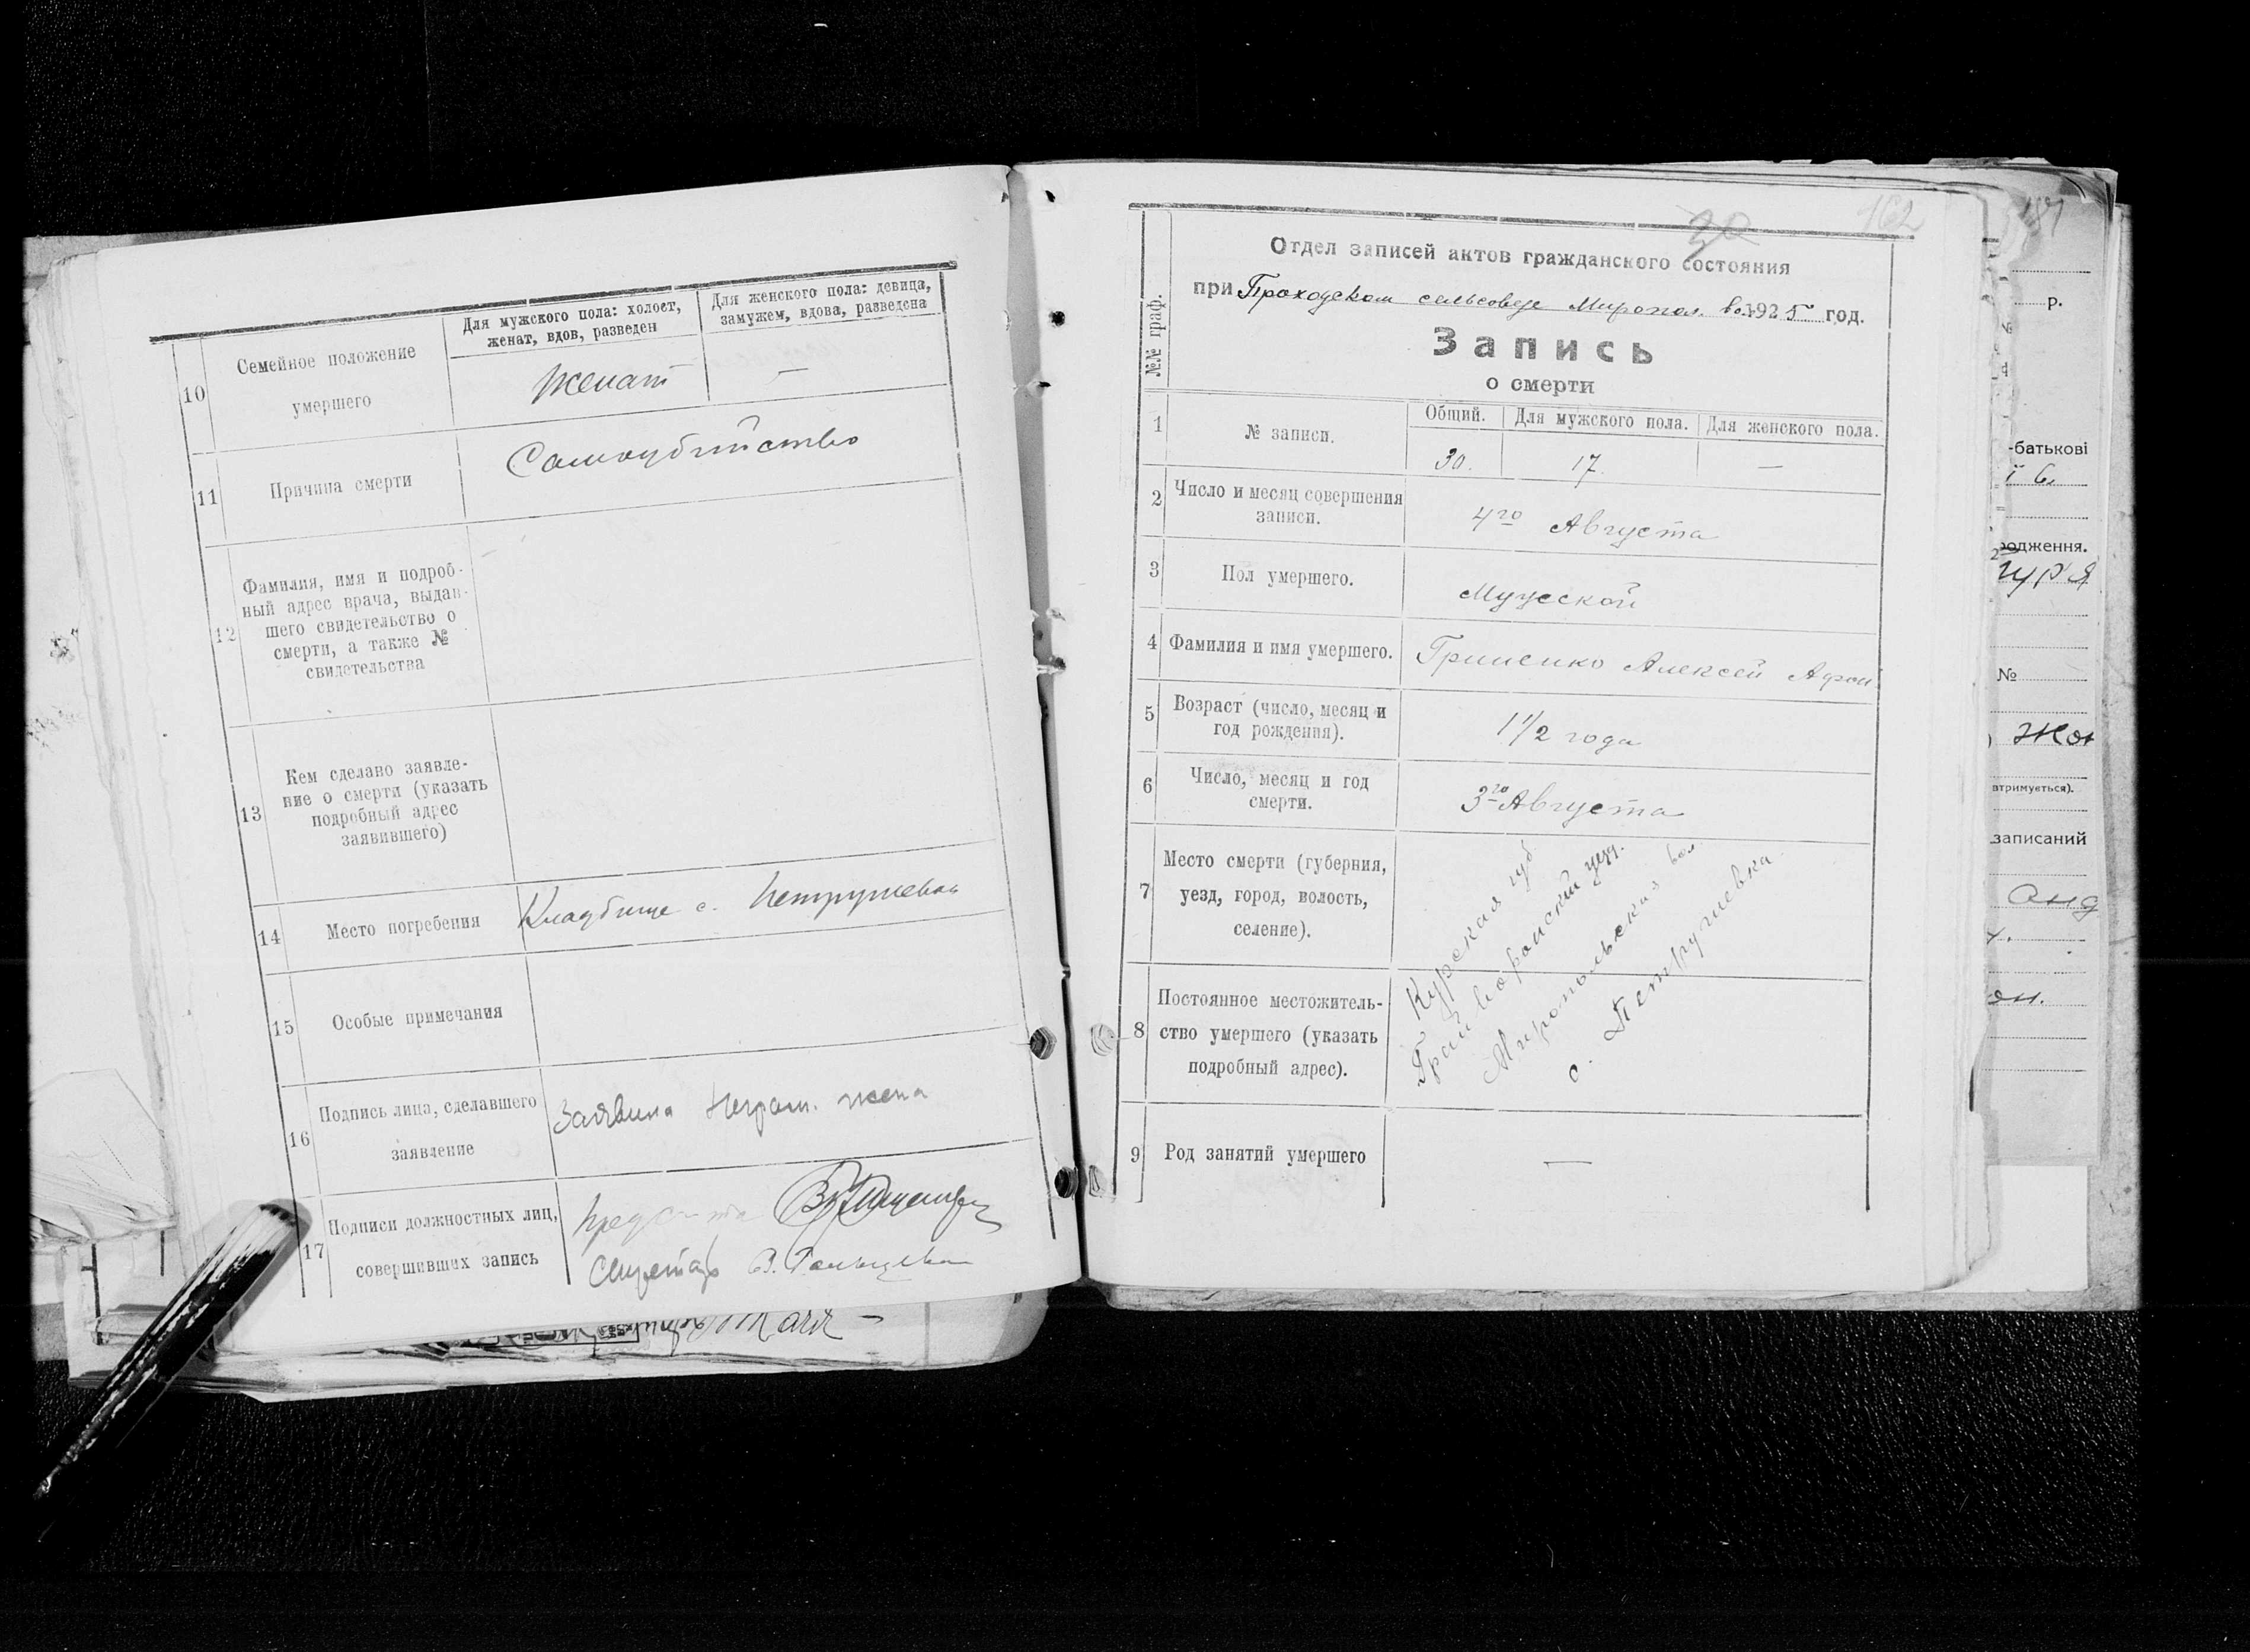 Для мужского пола: холост, женат, вдов, разведен
Для женского пола: девица, замужем, вдова, разведена
10
Семейное положение
умершего
Женат
—
11
Причина смерти
Самоубийство
12
Фамилия, имя и подроб-
ный адрес врача, выдав-
шего свидетельство о
смерти, а также №
свидетельства
13
Кем сделано заявле-
ние о смерти (указать
подробный адрес
заявившего)
14
Место погребения
Кладбище с. Петрушевка
15
Особые примечания
16
Подпись лица, сделавшего
заявление
Заявила Неграм. жена
17
Подписи должностных лиц,
совершивших запись
Секретарь
162
30
Отдел записей актов гражданского состояния
при Проходском сельсовете Миропол. вол. 1925 год.
№№ граф.
Запись
о смерти
1
№ записи.
Общий.
Для мужского пола.
Для женского пола.
30.
17.
—
2
Число и месяц совершения
записи.
4го Августа
3
Пол умершего.
Мужской
4
Фамилия и имя умершего.
Гриценко Алексей Афон
5
Возраст (число, месяц и
год рождения).
1 1/2 года
6
Число, месяц и год
смерти.
3го Августа
7
Место смерти (губерния,
уезд, город, волость,
селение).
Курская губ
Грайворонский уезд.
Миропольская вол
с. Петрушевка
8
Постоянное местожитель-
ство умершего (указать
подробный адрес).
9
Род занятий умершего
—
187
р.
№
-батькові
одження.
№
втримується).
записаний